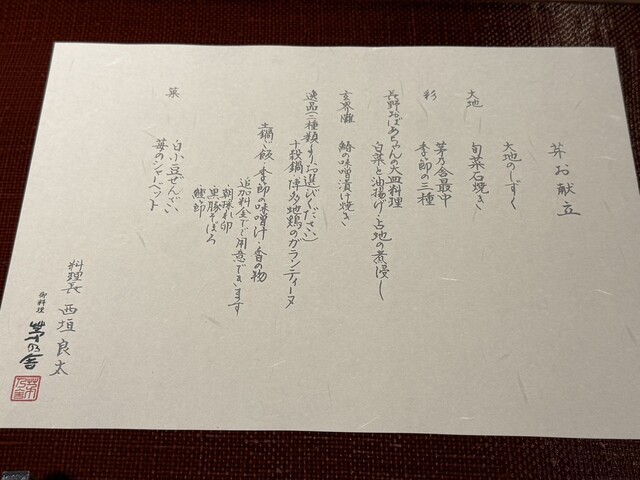 芽お献立
大地のしずく
大地
旬菜石焼き
彩
茅乃舎最中
季節の三種
長野おばあちゃんの大皿料理
白菜と油揚げ・占地の煮浸し
玄界灘
鰆の味噌漬け焼き
逸品(二種類よりお選びください)
十穀鍋
博多地鶏のガランティーヌ
土鍋ご飯
季節の味噌汁・香の物
追加料金でご用意できます
朝採れ卵
黒豚そぼろ
鰹節
菓
白小豆ぜんざい
苺のシャーベット
料理長 西垣良太
御料理 茅乃舎